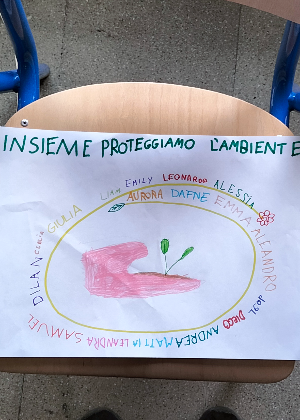 INSIEME PROTEGGIAMO L'AMBIENTE
LIAM EMILY LEONARDO ALESSIA
AURORA DAFNE EMMA ALEANDRO
GIULIA
CECILIA
DILAN
SAMUEL
LEANDRA
MATTIA
ANDREA
DIEGO
JOEL